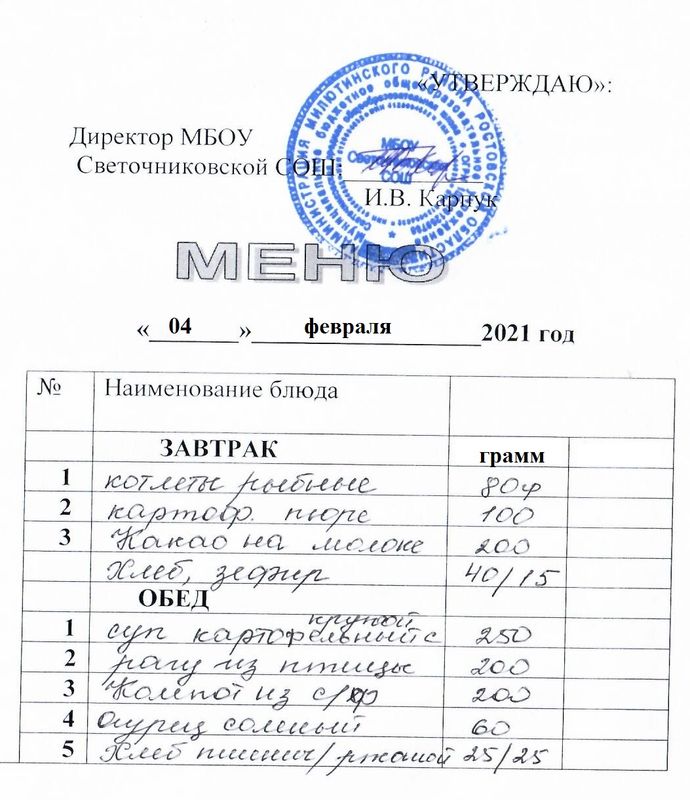 «УТВЕРЖДАЮ»:
Директор МБОУ
Светочниковской СОШ:
МБОУ
Светочниковская
СОШ
И.В. Карпук
МЕНЮ
«04» февраля 2021 год
№ Наименование блюда
ЗАВТРАК грамм
1 котлеты рыбные 80
2 картоф. пюре 100
3 Какао на молоке 200
Хлеб, зефир 40/15
ОБЕД
крупой
1 суп картофельный с 250
2 рагу из птицы 200
3 Компот из с/ф 200
4 огурец соленый 60
5 Хлеб пшенич/ржаной 25/25